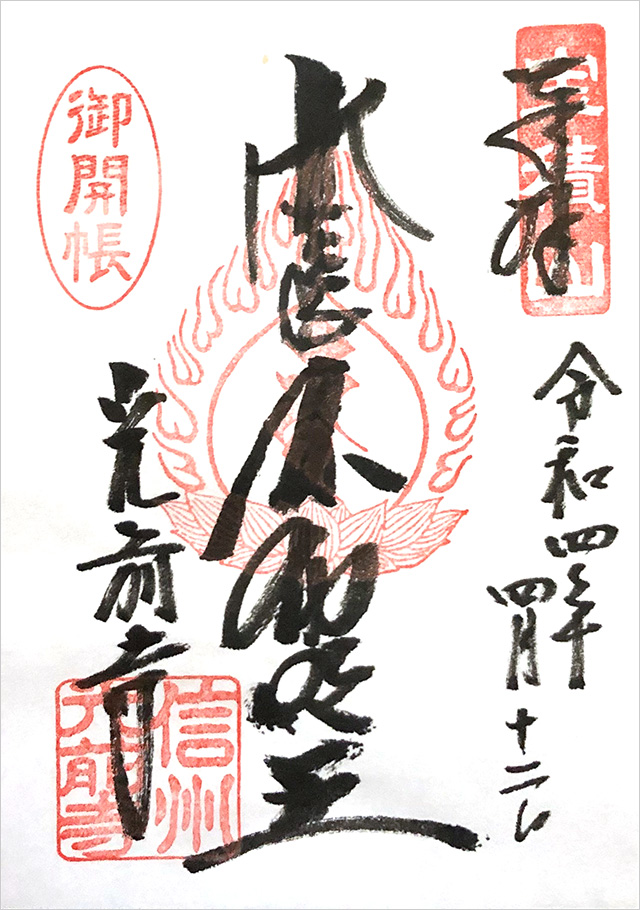 寶積山
奉拝
令和四年
四月十二日
不動明王
御開帳
光前寺
信州
光前寺